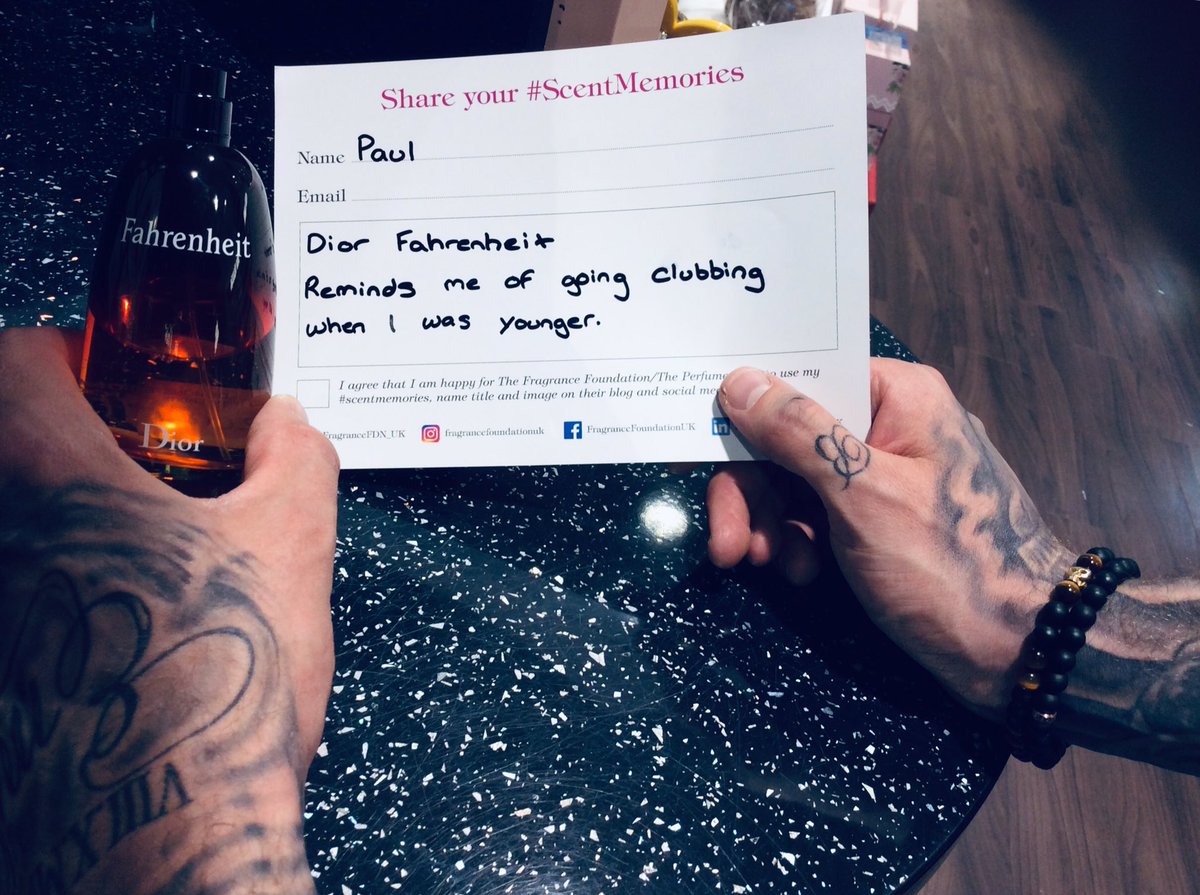 Share your #ScentMemories
Name Paul
Email
Dior Fahrenheit
Reminds me of going clubbing
when I was younger.
I agree that I am happy for The Fragrance Foundation/The Perfume to use my
#scentmemories, name title and image on their blog and social
FragranceFDN_UK fragrancefoundationuk FragranceFoundationUK
Fahrenheit
Dior